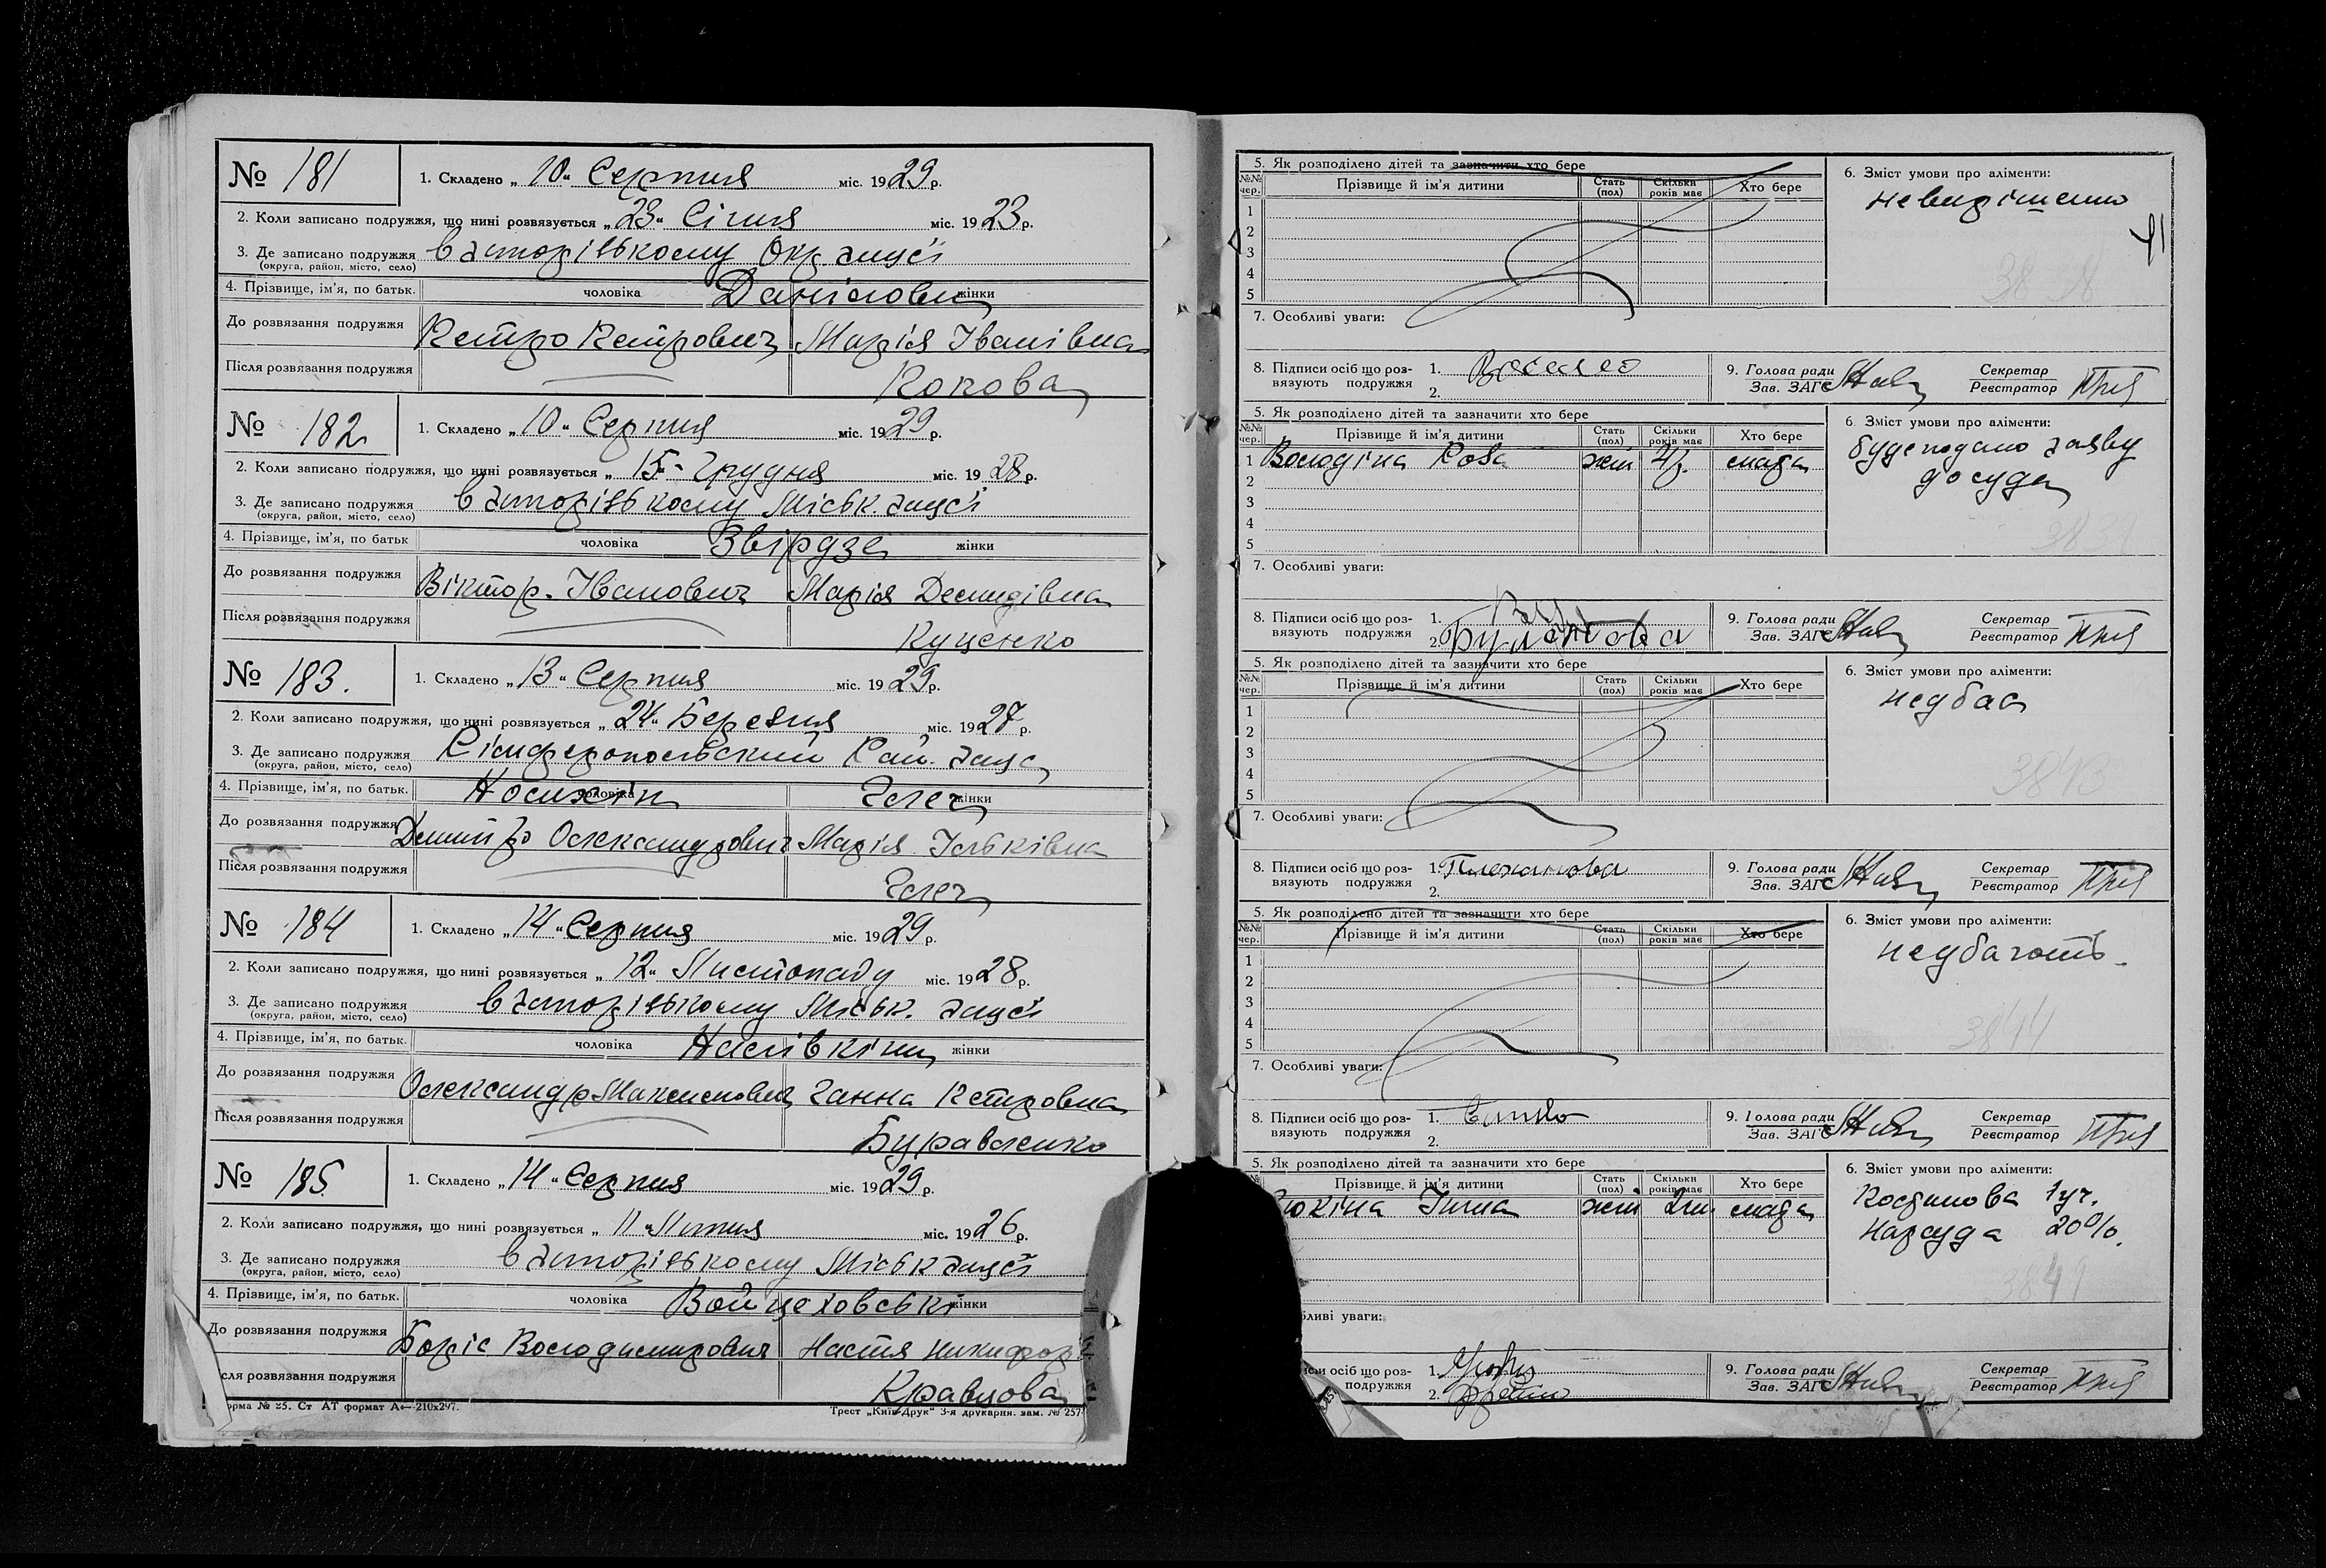 № 181
1. Складено „ 10 “ Серпня міс. 1929 р.
2. Коли записано подружжя, що нині розвязується „ 23 “ Січня міс. 1923 р.
3. Де записано подружжя в Запорізькому Окр загсі
(округа, район, місто, село)
4. Прізвище, ім’я, по батьк. чоловіка Данілови жінки
До розвязання подружжя Петро Петрович Марія Іванівна
Після розвязання подружжя
№ 182
1. Складено „ 10 “ Серпня міс. 1929 р.
2. Коли записано подружжя, що нині розвязується „ 15 “ Грудня міс. 1928 р.
3. Де записано подружжя в Запорізькому Міськ. загсі
(округа, район, місто, село)
4. Прізвище, ім’я, по батьк чоловіка жінки
До розвязання подружжя Віктор Іванович Марія Демидівна
Після розвязання подружжя Куценко
№ 183.
1. Складено „ 13 “ Серпня міс. 1929 р.
2. Коли записано подружжя, що нині розвязується „ 24 “ Березня міс. 1927 р.
3. Де записано подружжя Сімферопольський Рай. загс
(округа, район, місто, село)
4. Прізвище, ім’я, по батьк. чоловіка жінки
До розвязання подружжя Дмитро Олександрович Марія Ільківна
Після розвязання подружжя
№ 184
1. Складено „ 14 “ Серпня міс. 1929 р.
2. Коли записано подружжя, що нині розвязується „ 12 “ Листопаду міс. 1928 р.
3. Де записано подружжя в Запорізькому Міськ. загсі
(округа, район, місто, село)
4. Прізвище, ім’я, по батьк. чоловіка Наливкіни жінки
До розвязання подружжя Олександр Максимович Ганна Петровна
Після розвязання подружжя Буравленко
№ 185.
1. Складено „ 14 “ Серпня міс. 1929 р.
2. Коли записано подружжя, що нині розвязується „ 11 “ Липня міс. 1926 р.
3. Де записано подружжя в Запорізькому Міськ загсі
(округа, район, місто, село)
4. Прізвище, ім’я, по батьк. чоловіка Войцеховські жінки
До розвязання подружжя Боріс Володимирович Настя Никифор
сля розвязання подружжя Кравцова
орма № 25. Ст АТ формат А—210х297.
Трест „Київ-Друк“ 3-я друкарня. зам. № 257
5. Як розподілено дітей та зазначити хто бере
6. Зміст умови про аліменти:
№№ чер. Прізвище й ім’я дитини Стать (пол) Скільки років має Хто бере
невирішено
1
2
3
4
5
7. Особливі уваги:
8. Підписи осіб що роз- 1.
вязують подружжя 2.
9. Голова ради
Зав. ЗАГС
Секретар
Реєстратор
5. Як розподілено дітей та зазначити хто бере
6. Зміст умови про аліменти:
№№ чер. Прізвище й ім’я дитини Стать (пол) Скільки років має Хто бере
буде подано заяву
до суда
1 Володіна Роза жін мати
2
3
4
5
7. Особливі уваги:
8. Підписи осіб що роз- 1.
вязують подружжя 2. Булатова
9. Голова ради
Зав. ЗАГС
Секретар
Реєстратор
5. Як розподілено дітей та зазначити хто бере
6. Зміст умови про аліменти:
№№ чер. Прізвище й ім’я дитини Стать (пол) Скільки років має Хто бере
недбає
3843
1
2
3
4
5
7. Особливі уваги:
8. Підписи осіб що роз- 1. Плеханова
вязують подружжя 2.
9. Голова ради
Зав. ЗАГС
Секретар
Реєстратор
5. Як розподілено дітей та зазначити хто бере
6. Зміст умови про аліменти:
№№ чер. Прізвище й ім’я дитини Стать (пол) Скільки років має Хто бере
недбають
3844
1
2
3
4
5
7. Особливі уваги:
8. Підписи осіб що роз- 1.
вязують подружжя 2.
9. Голова ради
Зав. ЗАГС
Секретар
Реєстратор
5. Як розподілено дітей та зазначити хто бере
6. Зміст умови про аліменти:
Прізвище й ім’я дитини Стать (пол) Скільки років має Хто бере
1 уч.
Нарсуда 20%.
жін мати
бливі уваги:
иси осіб що роз- 1.
подружжя 2.
9. Голова ради
Зав. ЗАГС
Секретар
Реєстратор